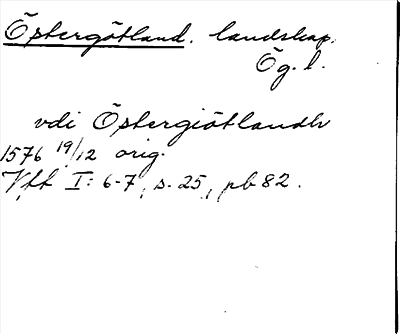 Östergötland. landskap.
Ög. l.
vdi Östergiötlandh
1576 19/12 orig.
Vff I: 6-7, s. 25, pb 82.